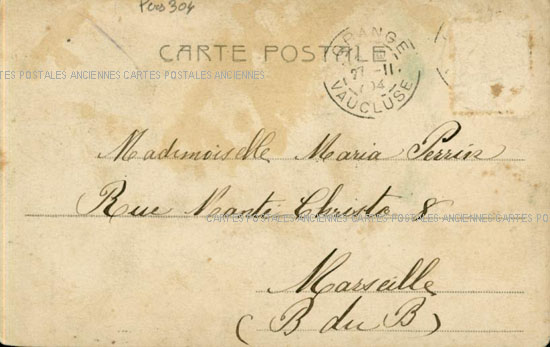 Pers 304
CARTE POSTALE
ORANGE
27 -11
04
VAUCLUSE
CARTES POSTALES ANCIENNES CARTES POSTALES ANCIENNES
Mademoiselle Maria Perrin
Rue Monte Christo 8
CARTES POSTALES ANCIENNES CARTES POSTALES ANCIENNES CARTES POSTALES
Marseille
(B du B)